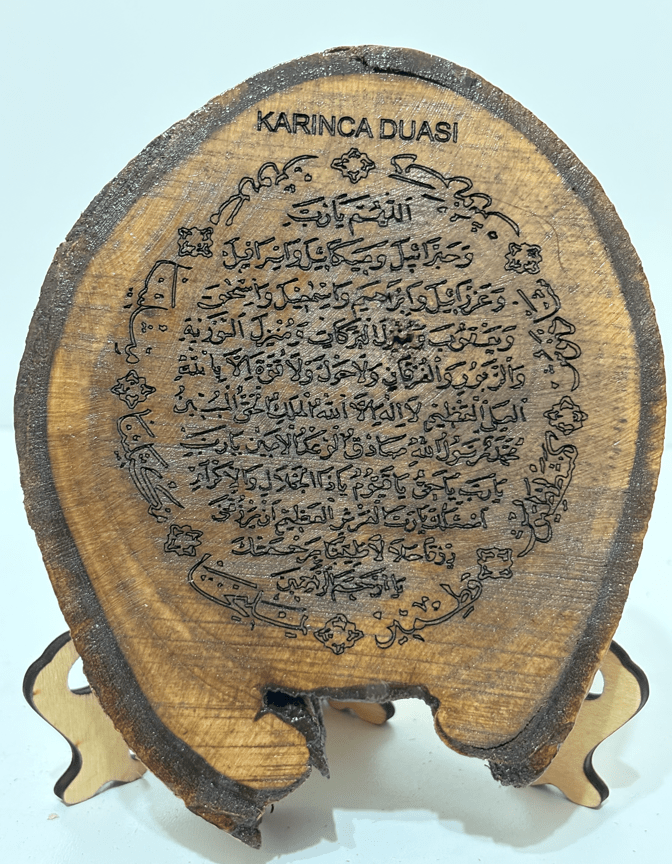 KARINCA DUASI
اللهم يارب
وجبرائيل وميكائيل واسرافيل
وعزرائيل وابراهيم واسمعيل واسحق
ويعقوب ومنزل البركات ومنزل التورية
والزبور والفرقان ولا حول ولا قوة الا بالله
العلى العظيم لا اله الا الله الملك الحق المبين
محمد رسول الله صادق الوعد الامين يارب
يارب ياحى ياقيوم ياذا الجلال والاكرام
اسئلك يارب العرش العظيم ان ترزقنى
رزقا حلالا طيبا برحمتك
يا ارحم الراحمين